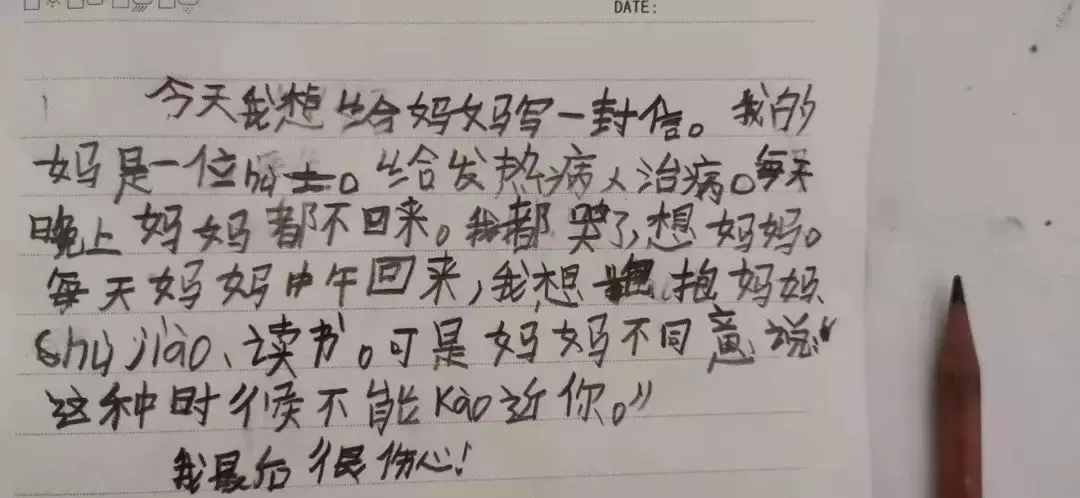 DATE:
今天我想给妈妈写一封信。我的
妈是一位hù士。给发热病人治病。每天
晚上妈妈都不回来。我都哭了,想妈妈。
每天妈妈中午回来,我想抱妈妈
Shuì jiào、读书。可是妈妈不同意说:“
这种时候不能Kào近你。”
我最后很伤心!